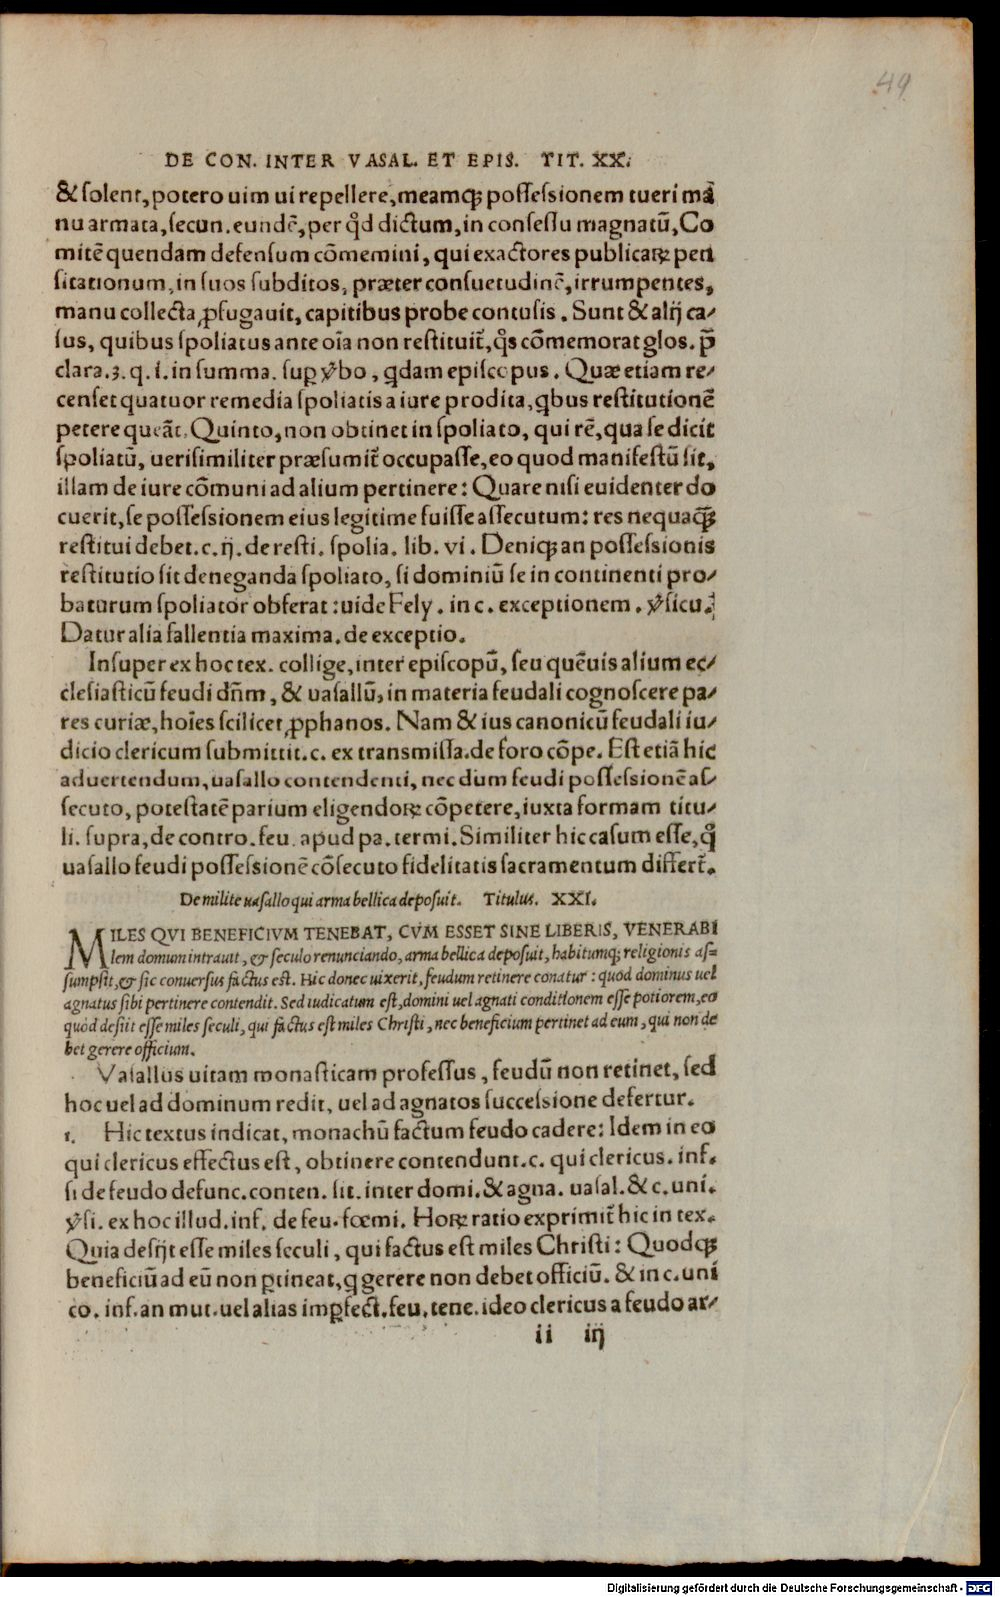 49
DE CON. INTER VASAL. ET EPIS. TIT. XX.
& solent, potero uim ui repellere, meamqꝫ possessionem tueri mã
nu armata, secun. eundẽ, per qd̉ dictum, in consessu magnatũ, Co
mitẽ quendam defensum cõmemini, qui exactores publicaꝝ peti
sitationum, in suos subditos, præter consuetudinẽ, irrumpentes,
manu collecta, ꝓfugauit, capitibus probe contusis. Sunt & alij ca⸗
sus, quibus spoliatus ante oĩa non restituit᷑, q̃s cõmemorat glos. p̃
clara. 3. q. i. in summa. suꝑ ꝟbo, q̃dam episcopus. Quæ etiam re⸗
censet quatuor remedia spoliatis a iure prodita, qbus restitutionẽ
petere queãt. Quinto, non obtinet in spoliato, qui rẽ, qua se dicit
spoliatũ, uerisimiliter præsumit᷑ occupasse, eo quod manifestũ sit,
illam de iure cõmuni ad alium pertinere: Quare nisi euidenter do
cuerit, se possessionem eius legitime fuisse assecutum: res nequaq̃ꝫ
restitui debet. c. ij. de resti. spolia. lib. vi. Deniqꝫ an possessionis
restitutio sit deneganda spoliato, si dominiũ se in continenti pro⸗
baturum spoliator obferat: uide Fely. in c. exceptionem. ꝟsicu.
Datur alia fallentia maxima. de exceptio.
Insuper ex hoc tex. collige, inter episcopũ, seu quẽuis alium ec⸗
clesiasticũ feudi dñm, & uasallũ, in materia feudali cognoscere pa⸗
res curiæ, hoĩes scilicet ꝓphanos. Nam & ius canonicũ feudali iu⸗
dicio clericum submittit. c. ex transmissa. de foro cõpe. Est etiã hic
aduertendum, uasallo contendenti, nec dum feudi possessionẽ as⸗
secuto, potestatẽ parium eligendoꝝ cõpetere, iuxta formam titu⸗
li. supra, de contro. feu. apud pa. termi. Similiter hic casum esse, q̉
uasallo feudi possessionẽ cõsecuto fidelitatis sacramentum differt᷑.
De milite uasallo qui arma bellica deposuit. Titulus. XXI.
MILES QVI BENEFICIVM TENEBAT, CVM ESSET SINE LIBERIS, VENERABI
lem domum intrauit, & seculo renunciando, arma bellica deposuit, habitumqꝫ religionis as⸗
sumpsit, & sic conuersus factus est. Hic donec uixerit, feudum retinere conatur: quòd dominus uel
agnatus sibi pertinere contendit. Sed iudicatum est, domini uel agnati conditionem esse potiorem, eo
quòd desiit esse miles seculi, qui factus est miles Christi, nec beneficium pertinet ad eum, qui non de
bet gerere officium.
Vasallus uitam monasticam professus, feudũ non retinet, sed
hoc uel ad dominum redit, uel ad agnatos successione defertur.
1. Hic textus indicat, monachũ factum feudo cadere: Idem in eo
qui clericus effectus est, obtinere contendunt. c. qui clericus. inf.
si de feudo defunc. conten. sit. inter domi. & agna. uasal. & c. uni.
ꝟsi. ex hoc illud. inf. de feu. fœmi. Hoꝝ ratio exprimit᷑ hic in tex.
Quia desijt esse miles seculi, qui factus est miles Christi: Quodqꝫ
beneficiũ ad eũ non ꝑtineat, q gerere non debet officiũ. & in c. uni
co. inf. an mut. uel alias imꝑfect. feu. tene. ideo clericus a feudo ar⸗
ii iij
Digitalisierung gefördert durch die Deutsche Forschungsgemeinschaft - DFG